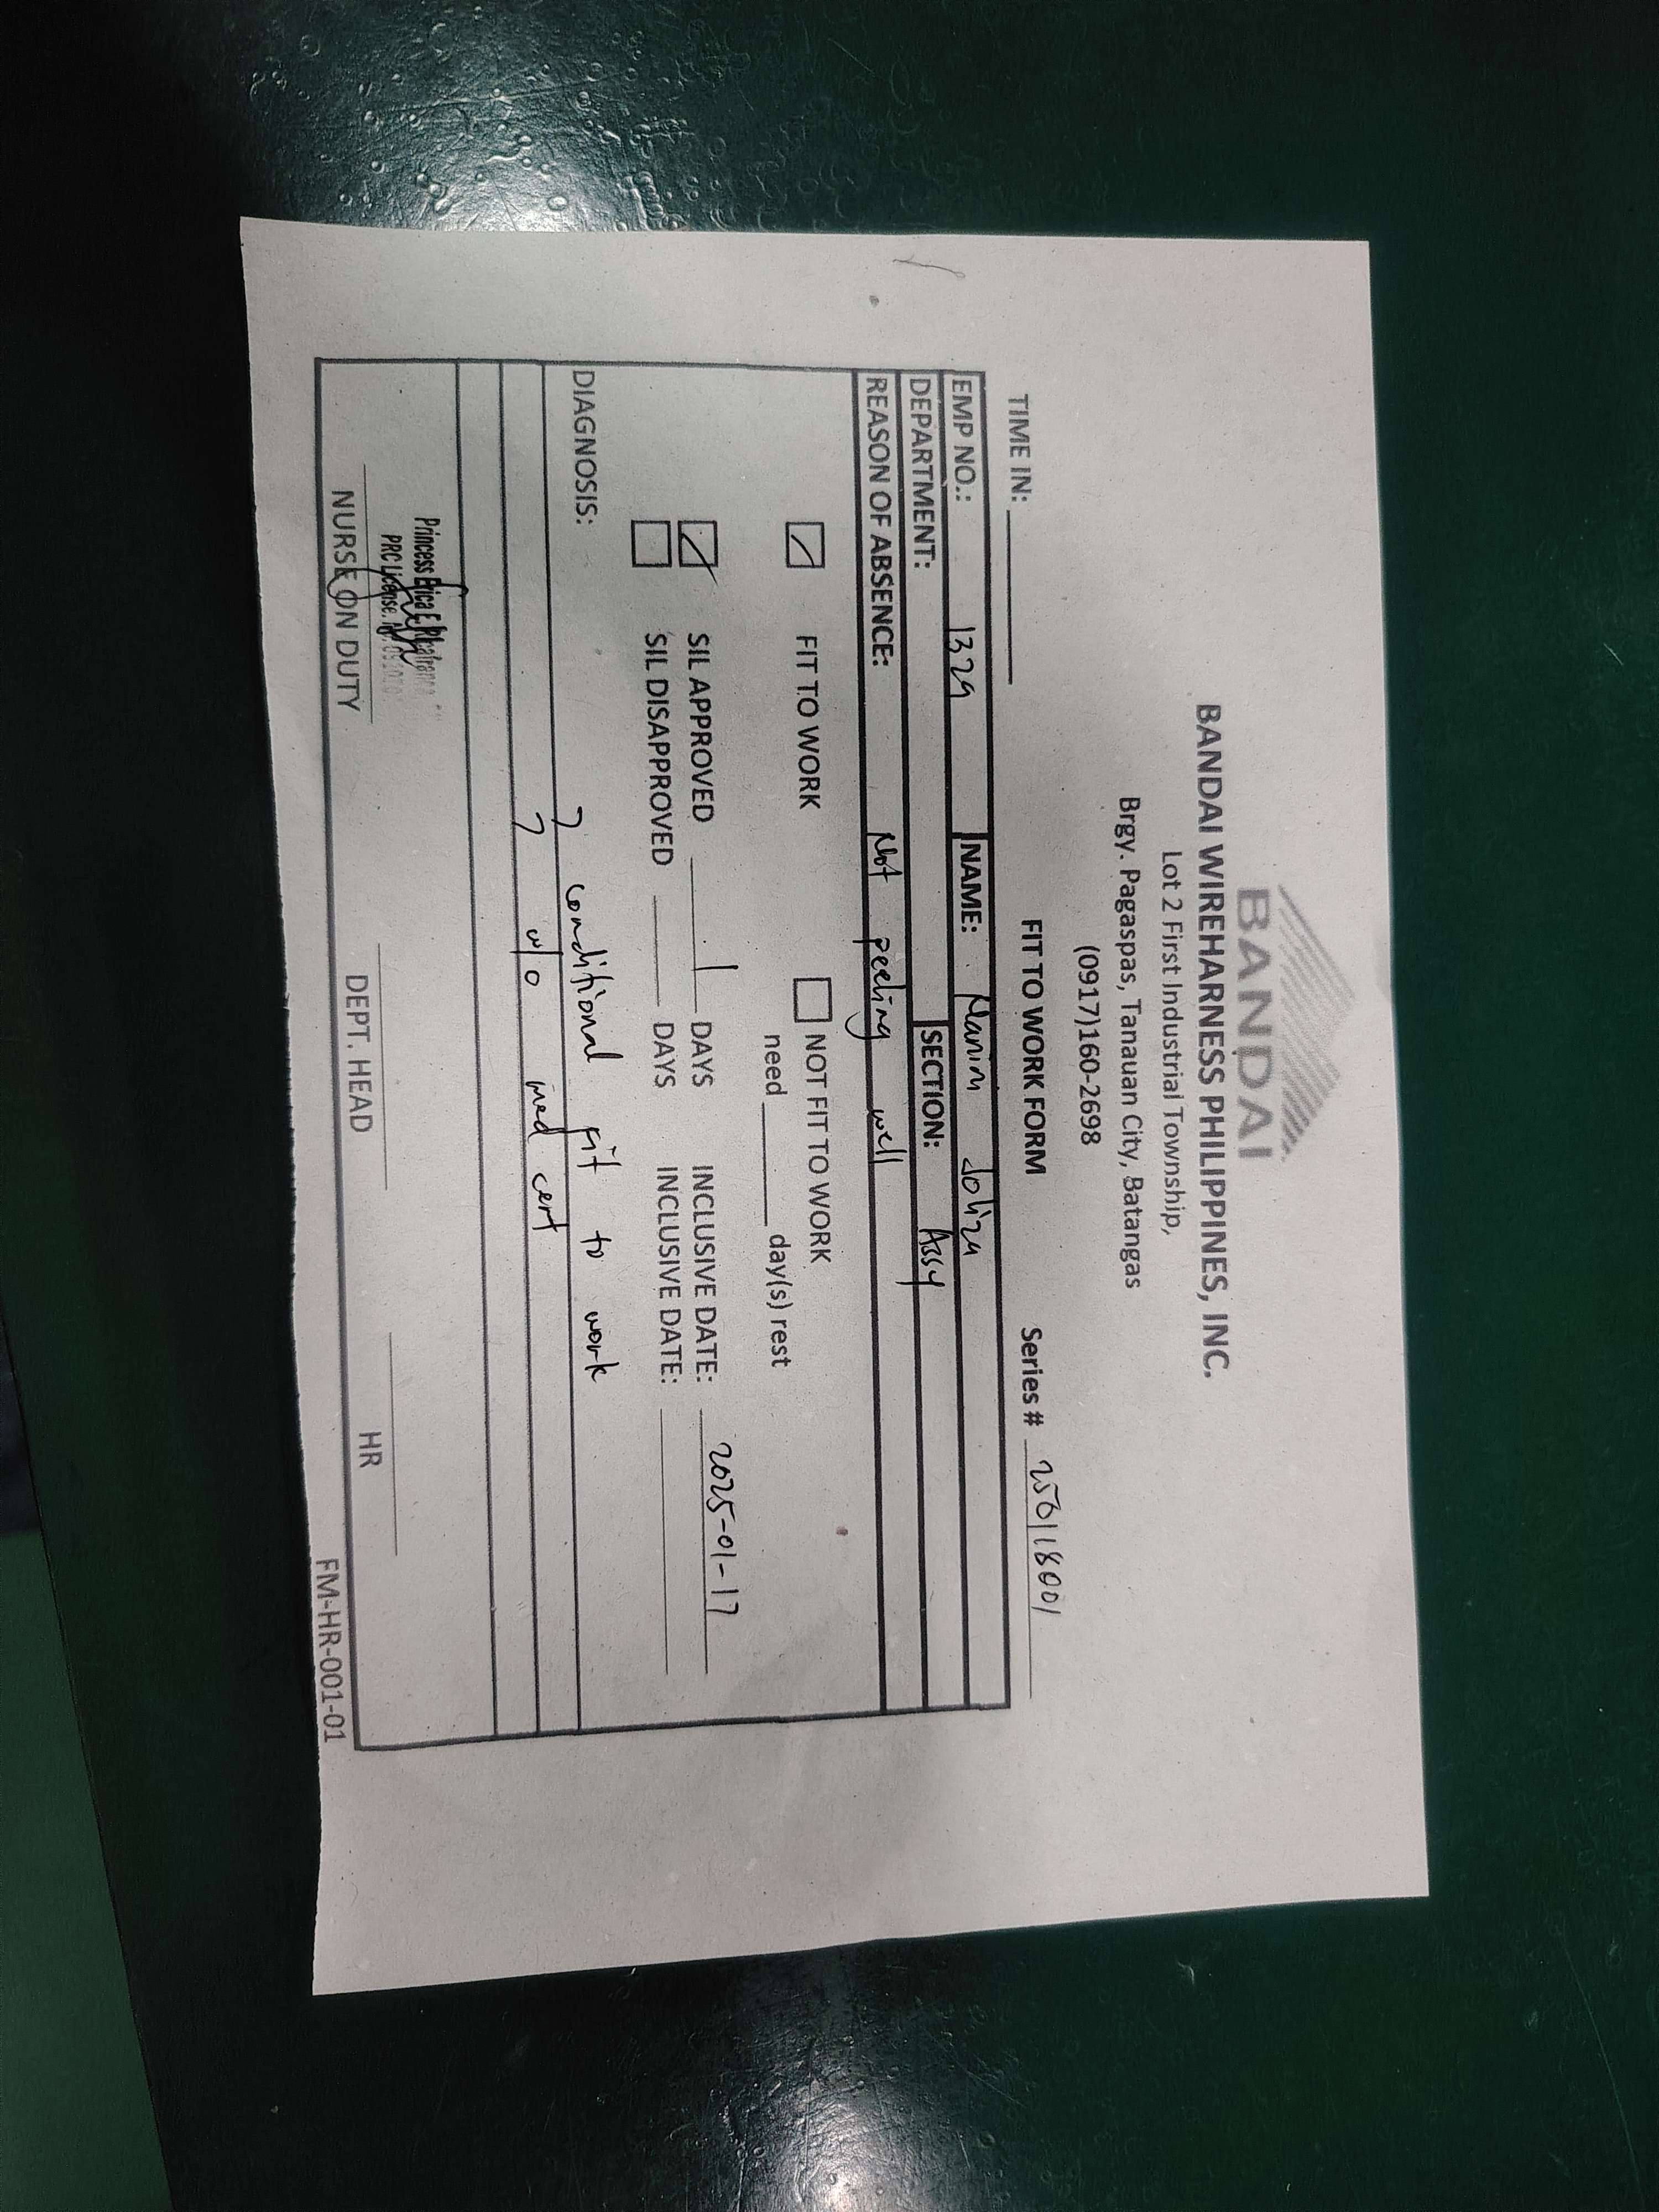 BANDAI
BANDAI WIREHARNESS PHILIPPINES, INC.
Lot 2 First Industrial Township,
Brgy. Pagaspas, Tanauan City, Batangas
(0917)160-2698
FIT TO WORK FORM
TIME IN: Series # 250118001
EMP NO.: 1329 NAME:
DEPARTMENT: SECTION: Assy
REASON OF ABSENCE: Not feeling well
FIT TO WORK NOT FIT TO WORK
need day(s) rest
SIL APPROVED 1 DAYS INCLUSIVE DATE: 2025-01-17
SIL DISAPPROVED DAYS INCLUSIVE DATE:
DIAGNOSIS: conditional fit to work
w/o med cert
Princess Erica E.
PRC License. No.
NURSE ON DUTY DEPT. HEAD HR
FM-HR-001-01